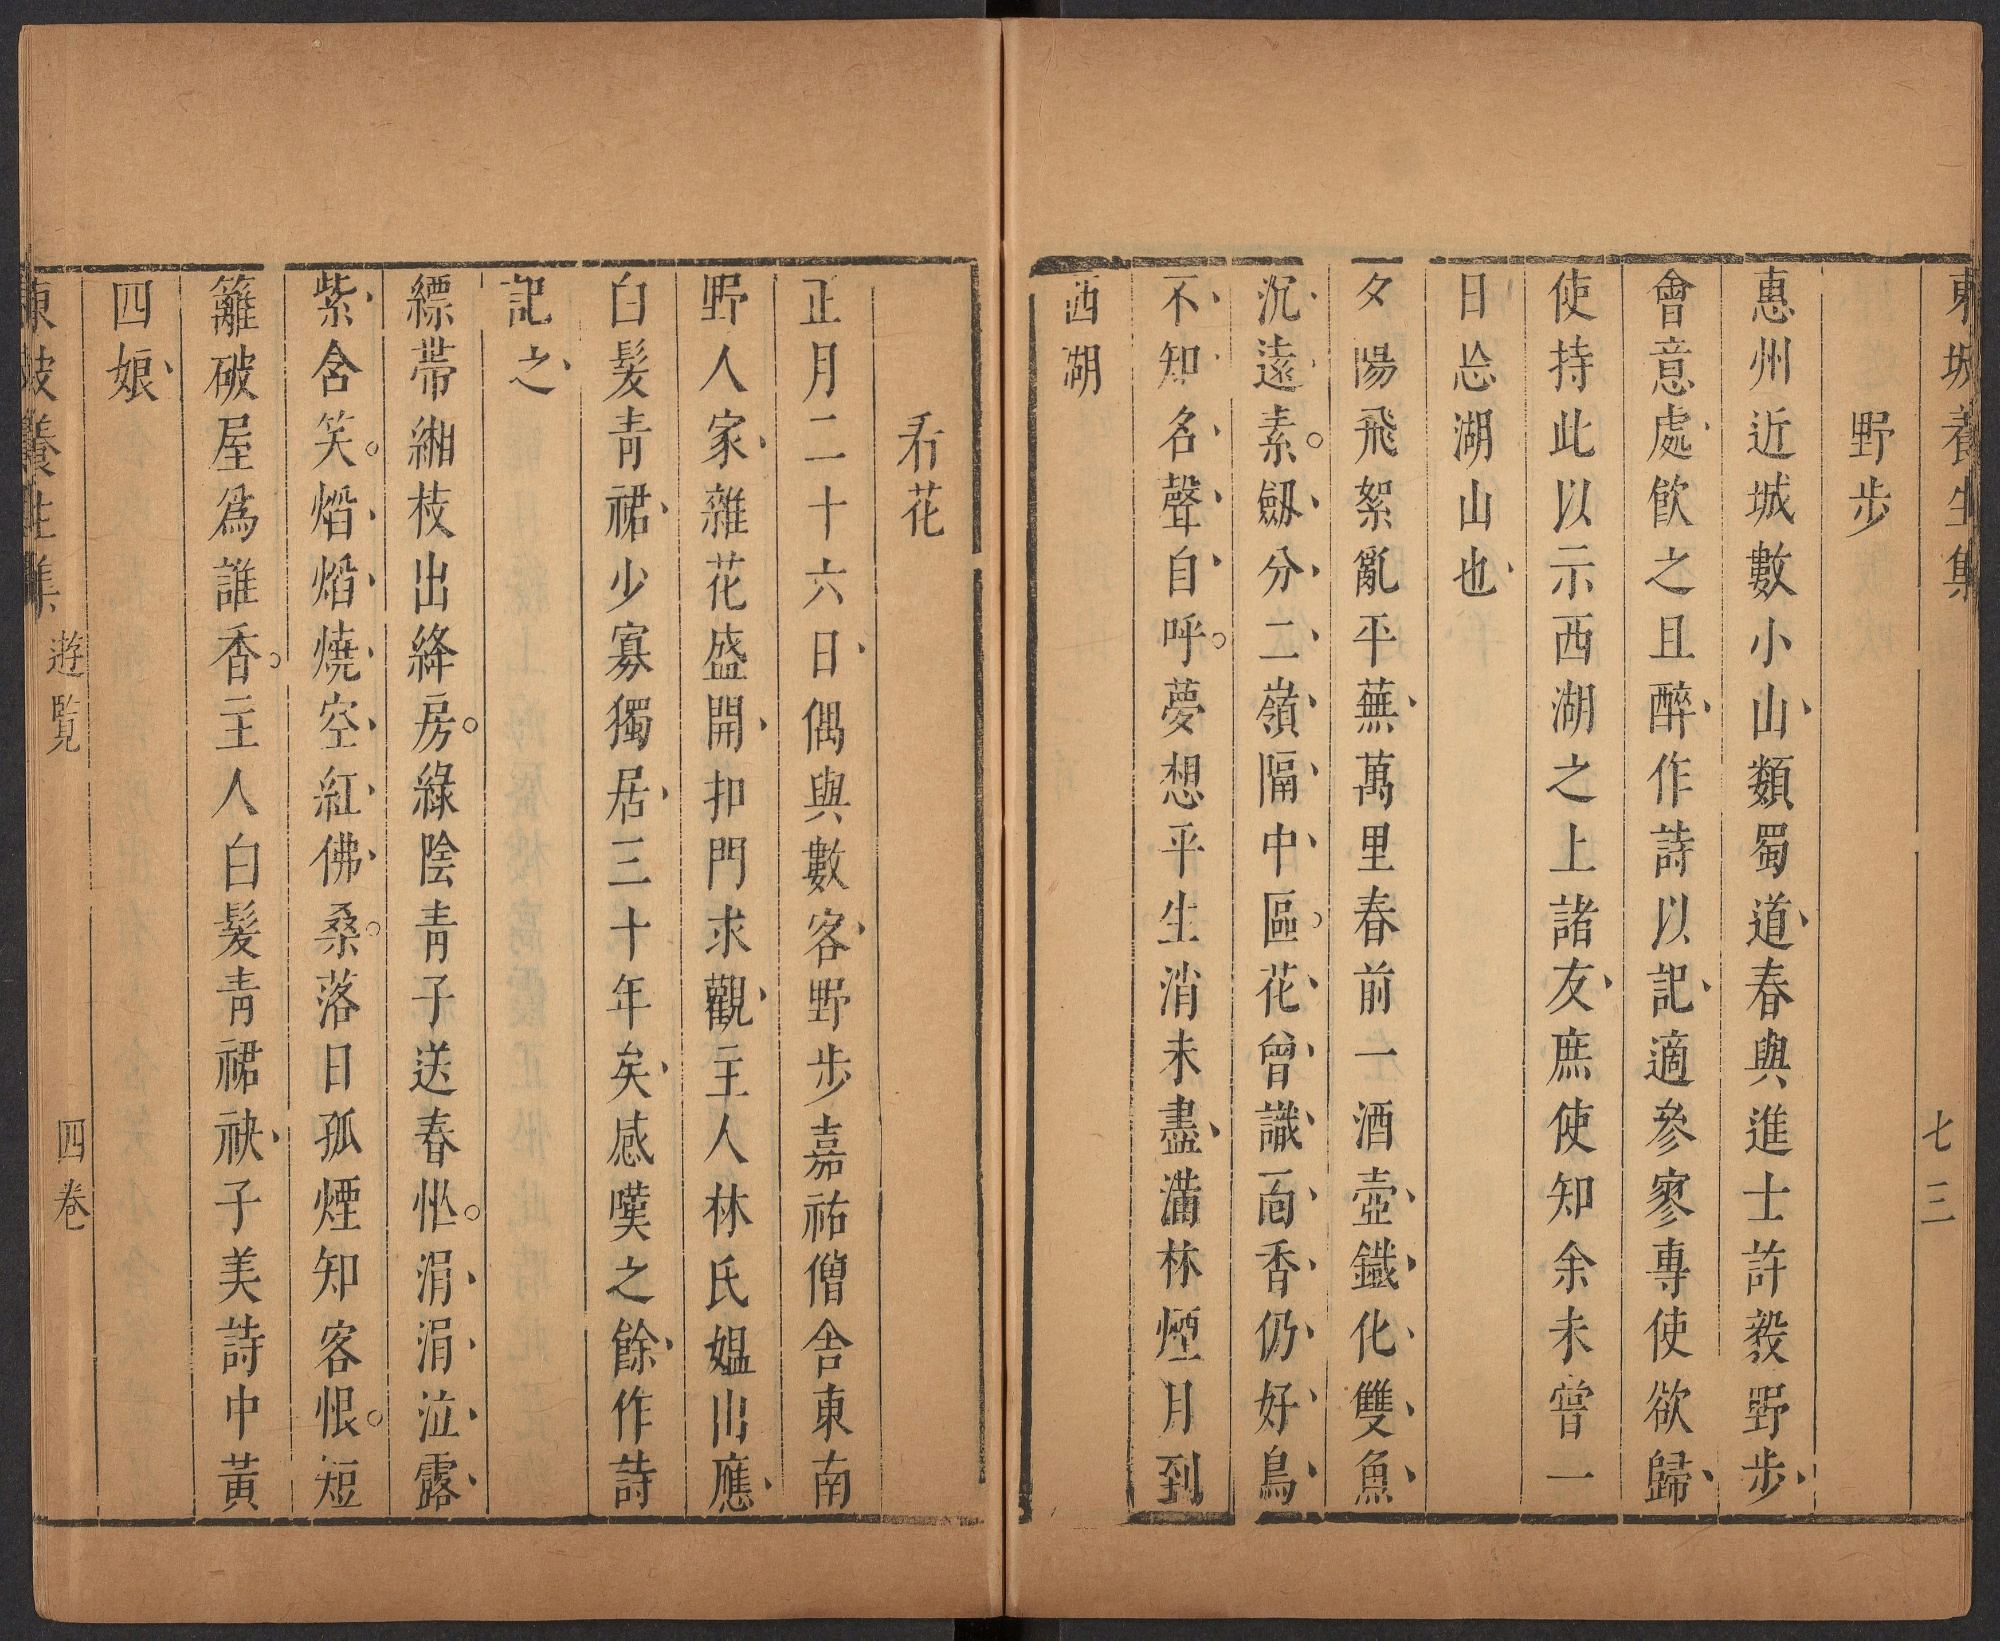 東坡養生集
七三
野步
惠州近城數小山類蜀道春與進士許毅野步
會意處飲之且醉作詩以記適參寥專使欲歸
使持此以示西湖之上諸友庶使知余未嘗一
日忘湖山也
夕陽飛絮亂平蕪萬里春前一酒壺鐵化雙魚
沉遠素劔分二嶺隔中區花曾識靣香仍好鳥
不知名聲自呼夢想平生消未盡滿林煙月到
西湖
看花
正月二十六日偶與數客野步嘉祐僧舍東南
野人家雜花盛開扣門求觀主人林氏媼出應
白髮青裙少寡獨居三十年矣感嘆之餘作詩
記之
縹帶緗枝出絳房綠陰青子送春忙涓涓泣露
紫含笑焰焰燒空紅佛桑落日孤煙知客恨短
籬破屋爲誰香主人白髮青裙袂子美詩中黃
四娘
東坡養生集
遊覽
四卷